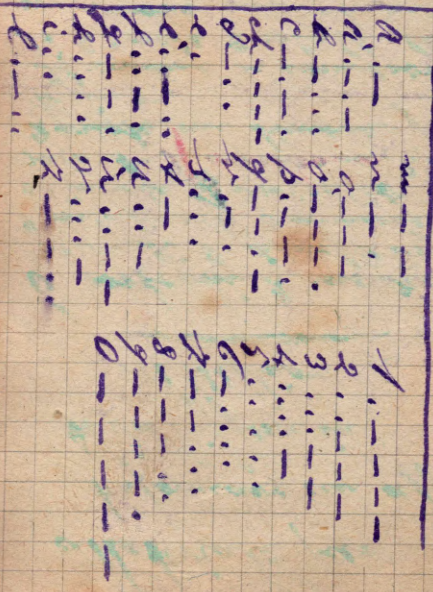 a . —
b — . . .
c — . — .
ch — — — —
d — . .
e .
é . . — . .
f . . — .
g — — .
h . . . .
i . .
l . — . .
m — —
n — .
o — — —
ö — — — .
p . — — .
q — — . —
r . — .
s . . .
t —
u . . —
ü . . — —
v . . . —
z — — . .
1 . — — — —
2 . . — — —
3 . . . — —
4 . . . . —
5 . . . . .
6 — . . . .
7 — — . . .
8 — — — . .
9 — — — — .
0 — — — — —